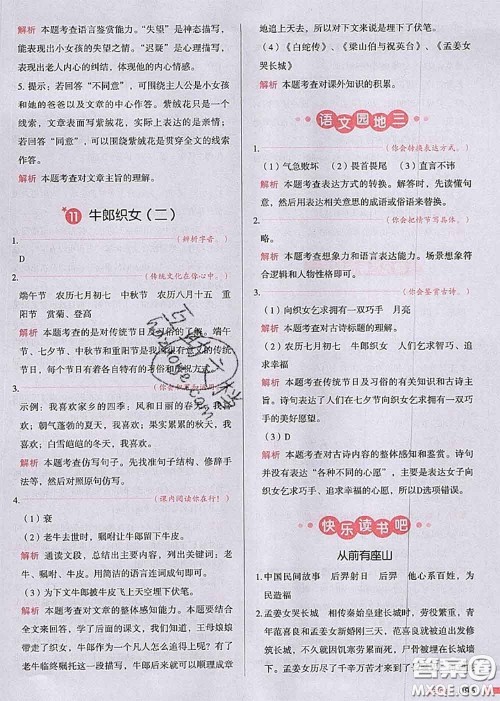 解析 本题考查语言鉴赏能力。“失望”是神态描写，
能表现出小女孩的失望之情。“迟疑”是心理描写，
能表现出老人内心的纠结，体现他的内心情感。
5. 提示：若回答“不同意”，可以围绕主人公是小女孩
和她的爸爸以及文章的中心作答。紫绒花只是线索。
若回答“同意”，可以围绕紫绒花是贯穿全文的线索
作答。
解析 本题考查对文章主旨的理解。
11 牛郎织女（二）
1.（辨析字音。）
D
2.（传统文化在你心中。）
端午节 农历七月初七 中秋节 农历八月十五 重
阳节 赏菊、登高
解析 本题考查的是对传统节日及习俗的了解。端午
节、七夕节、中秋节和重阳节是我国很有意义的传统节
日，每个节日有着各自的习俗和庆祝方式。
3.
示例：我喜欢家乡的四季；风和日丽的春天，我喜
欢；朝气蓬勃的夏天，我喜欢；果实累累的秋天，我
喜欢；白雪皑皑的冬天，我喜欢。
解析 本题考查仿写句子。先找准句子结构、修辞手
法等，然后对照原句仿写。
4.（课内阅读你在行！）
（1）衰
（2）老牛去世时，嘱咐让牛郎留下牛皮。
解析 通读文段，总结文段内容，列出关键词：老牛
去世、嘱咐、牛皮。用简洁的语言连词成句即可。
（3）为下文牛郎披牛皮飞上天空埋下伏笔。
解析 本题考查对文章的整体感知能力。本题要结合
全文，学了后面的课文，我们会知道，王母娘娘
带走了织女，牛郎作为一个凡人怎么上天呢？有了
老牛临终嘱托这一段描写，后面牛郎就可以顺理成章
地追上天去了，所以对下文来说是埋下伏笔。
（4）《白蛇传》、《梁山伯与祝英台》、《孟姜女
哭长城》
解析 本题考查对课外知识的积累。
语文园地三
1.（你会转换表达方式。）
（1）气急败坏 （2）畏首畏尾 （3）直言不讳
解析 本题考查表达方式的转换。解答时，先读懂句
意，然后用相关意思的成语或俗语来替换。
2.（你会把情节写具体。）
略。
解析 本题考查想象力和语言表达能力。场景想象符
合逻辑和人物性格即可。
3.（你会鉴赏古诗。）
（1）向织女乞求拥有一双巧手 月亮
解析 本题考查对古诗标题的理解。
（2）农历七月初七 牛郎织女 人们乞求智巧、追
求幸福
解析 本题考查传统节日及习俗的有关知识和古诗主
旨。诗句表达了人们在七夕节乞求向织女乞求拥有一双巧
手的美好愿望。
（3）D
解析 本题考查对古诗内容的整体感知和鉴赏。诗句
并没有表达“各种不同的心愿”，主要是表达女子向
织女乞求巧手、追求幸福的心愿，所以D选项错误。
快乐读书吧
从前有座山
1. 中国民间故事 后羿射日 后羿 他心系百姓，为
民造福
2. 孟姜女哭长城 相传秦始皇建长城时，劳役繁重，青
年范喜良和孟姜女新婚三天，范喜良就被迫出发修筑
长城，不久因饥寒劳累而死，尸骨被埋在长城墙下。
孟姜女历尽了千辛万苦
答案圈
MXQE.COM